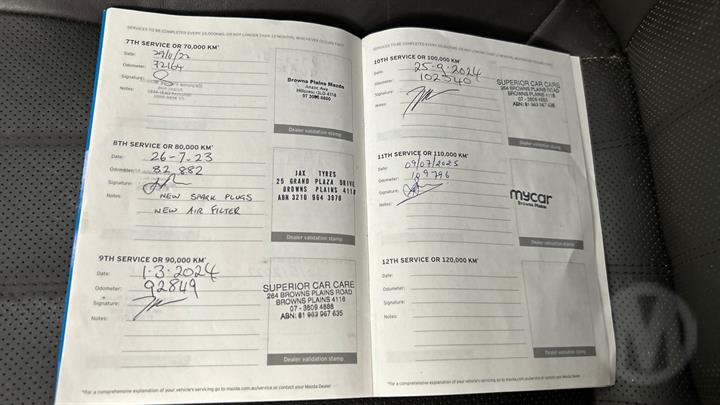 SERVICES TO BE COMPLETED EVERY 10,000KMS, OR NOT LONGER THAN 12 MONTHS, WHICHEVER OCCURS FIRST
7TH SERVICE OR 70,000 KM*
Date: 29/11/22
Odometer: 72164
Signature:
Notes:
Browns Plains Mazda
Anzac Ave
Hillcrest QLD 4118
Dealer validation stamp
8TH SERVICE OR 80,000 KM*
Date: 26-7-23
Odometer: 82,882
Signature:
Notes: NEW SPARK PLUGS
NEW AIR FILTER
JAX TYRES
25 GRAND PLAZA DRIVE
BROWNS PLAINS 4118
ABN 3216 964 3978
Dealer validation stamp
9TH SERVICE OR 90,000 KM*
Date: 1.3.2024
Odometer: 92849
Signature:
Notes:
SUPERIOR CAR CARE
264 BROWNS PLAINS ROAD
BROWNS PLAINS 4118
07 - 3809 4888
ABN: 81 963 967 635
Dealer validation stamp
*For a comprehensive explanation of your vehicle's servicing go to mazda.com.au/service or contact your Mazda Dealer
10TH SERVICE OR 100,000 KM*
Date: 25.9.2024
Odometer: 102540
Signature:
Notes:
SUPERIOR CAR CARE
264 BROWNS PLAINS ROAD
BROWNS PLAINS 4118
Dealer validation stamp
11TH SERVICE OR 110,000 KM*
Date: 09/07/2025
Odometer: 109796
Signature:
Notes:
mycar
Browns Plains
Dealer validation stamp
12TH SERVICE OR 120,000 KM*
Date:
Odometer:
Signature:
Notes:
Dealer validation stamp
*For a comprehensive explanation of your vehicle's servicing go to mazda.com.au/service or contact your Mazda Dealer